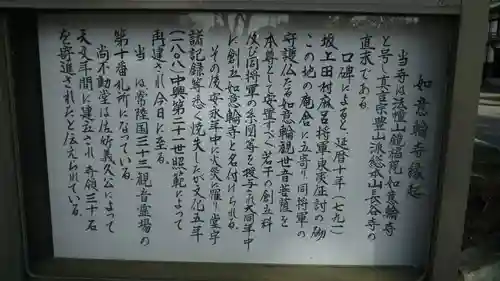 如意輪寺縁起
当寺は法憧山観福院如意輪寺
と号し真言宗豊山派総本山長谷寺の
直末である
口碑によると延暦十年(七九一)
坂上田村麻呂将軍東夷征討の砌
この地の庵舎に立寄り同将軍の
守護仏たる如意輪観世音菩薩を
本尊として安置すべく若干の創立料
及び同将軍の系図等を授与され大同年中
に創立如意輪寺と名付けられる
その後安永年中火災に罹り堂宇
諸記録等悉く焼失したが文化五年
(一八〇八)中興第二十一世照範によって
再建され今日に至る
当 は常陸国三十三観音霊場の
第十番札所になっている
尚不動堂は佐竹義久公によって
天文年間に建立され寺領三十石
を寄進されたと伝えられている。